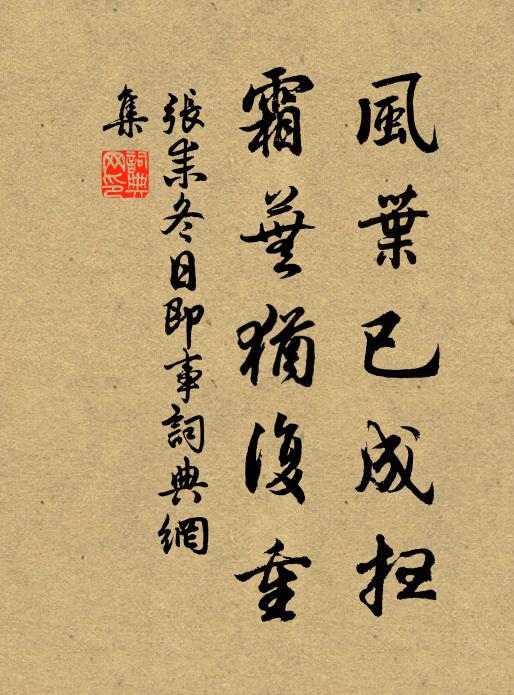 風葉已成扫
霜蕪猶復重
張耒冬日即事詞典網
集
詞典网印